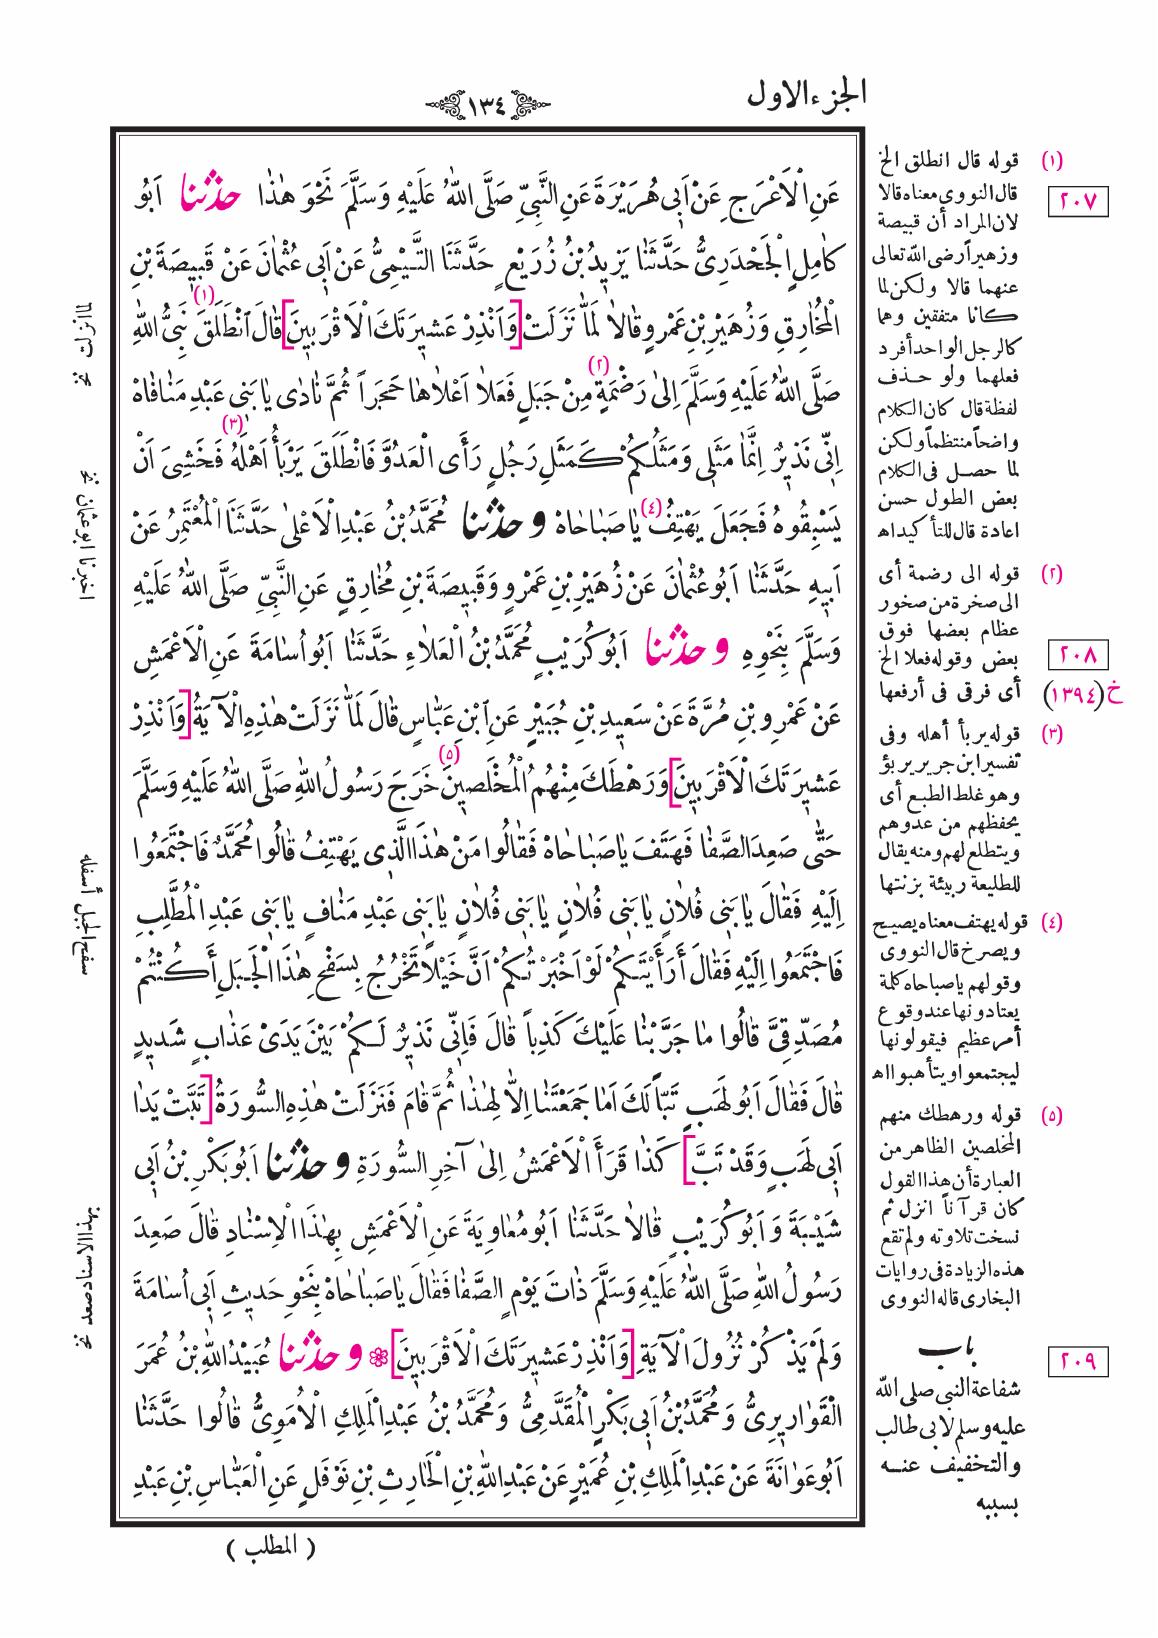 الجزء الاول
١٣٤
عَنِ الْاَعْرَجِ عَنْ اَبِي هُرَيْرَةَ عَنِ النَّبِيِّ صَلَّى اللهُ عَلَيْهِ وَسَلَّمَ نَحْوَ هٰذَا حَدَّثَنَا اَبُو
كَامِلٍ الْجَحْدَرِيُّ حَدَّثَنَا يَزِيدُ بْنُ زُرَيْعٍ حَدَّثَنَا التَّيْمِيُّ عَنْ اَبِي عُثْمَانَ عَنْ قَبِيصَةَ بْنِ
الْمُخَارِقِ وَزُهَيْرِ بْنِ عَمْرٍو قَالَا لَمَّا نَزَلَتْ [وَاَنْذِرْ عَشِيرَتَكَ الْاَقْرَبِينَ] قَالَ انْطَلَقَ (١) نَبِيُّ اللهِ
صَلَّى اللهُ عَلَيْهِ وَسَلَّمَ اِلٰى رَضْمَةٍ (٢) مِنْ جَبَلٍ فَعَلَا اَعْلَاهَا حَجَراً ثُمَّ نَادٰى يَا بَنِي عَبْدِ مَنَافَاهْ
اِنِّي نَذِيرٌ اِنَّمَا مَثَلِي وَمَثَلُكُمْ كَمَثَلِ رَجُلٍ رَأَى الْعَدُوَّ فَانْطَلَقَ يَرْبَأُ (٣) اَهْلَهُ فَخَشِيَ اَنْ
يَسْبِقُوهُ فَجَعَلَ يَهْتِفُ (٤) يَا صَبَاحَاهْ وَحَدَّثَنَا مُحَمَّدُ بْنُ عَبْدِ الْاَعْلٰى حَدَّثَنَا الْمُعْتَمِرُ عَنْ
اَبِيهِ حَدَّثَنَا اَبُو عُثْمَانَ عَنْ زُهَيْرِ بْنِ عَمْرٍو وَقَبِيصَةَ بْنِ مُخَارِقٍ عَنِ النَّبِيِّ صَلَّى اللهُ عَلَيْهِ
وَسَلَّمَ بِنَحْوِهِ وَحَدَّثَنَا اَبُو كُرَيْبٍ مُحَمَّدُ بْنُ الْعَلَاءِ حَدَّثَنَا اَبُو اُسَامَةَ عَنِ الْاَعْمَشِ
عَنْ عَمْرِو بْنِ مُرَّةَ عَنْ سَعِيدِ بْنِ جُبَيْرٍ عَنِ ابْنِ عَبَّاسٍ قَالَ لَمَّا نَزَلَتْ هٰذِهِ الْآيَةُ [وَاَنْذِرْ
عَشِيرَتَكَ الْاَقْرَبِينَ] وَرَهْطَكَ مِنْهُمُ الْمُخْلَصِينَ (٥) خَرَجَ رَسُولُ اللهِ صَلَّى اللهُ عَلَيْهِ وَسَلَّمَ
حَتّٰى صَعِدَ الصَّفَا فَهَتَفَ يَا صَبَاحَاهْ فَقَالُوا مَنْ هٰذَا الَّذِي يَهْتِفُ قَالُوا مُحَمَّدٌ فَاجْتَمَعُوا
اِلَيْهِ فَقَالَ يَا بَنِي فُلَانٍ يَا بَنِي فُلَانٍ يَا بَنِي فُلَانٍ يَا بَنِي عَبْدِ مَنَافٍ يَا بَنِي عَبْدِ الْمُطَّلِبِ
فَاجْتَمَعُوا اِلَيْهِ فَقَالَ أَرَأَيْتَكُمْ لَوْ اَخْبَرْتُكُمْ اَنَّ خَيْلاً تَخْرُجُ بِسَفْحِ هٰذَا الْجَبَلِ أَكُنْتُمْ
مُصَدِّقِيَّ قَالُوا مَا جَرَّبْنَا عَلَيْكَ كَذِباً قَالَ فَاِنِّي نَذِيرٌ لَكُمْ بَيْنَ يَدَيْ عَذَابٍ شَدِيدٍ
قَالَ فَقَالَ اَبُو لَهَبٍ تَبّاً لَكَ اَمَا جَمَعْتَنَا اِلَّا لِهٰذَا ثُمَّ قَامَ فَنَزَلَتْ هٰذِهِ السُّورَةُ [تَبَّتْ يَدَا
اَبِي لَهَبٍ وَقَدْ تَبَّ] كَذَا قَرَأَ الْاَعْمَشُ اِلٰى آخِرِ السُّورَةِ وَحَدَّثَنَا اَبُو بَكْرِ بْنُ اَبِي
شَيْبَةَ وَاَبُو كُرَيْبٍ قَالَا حَدَّثَنَا اَبُو مُعَاوِيَةَ عَنِ الْاَعْمَشِ بِهٰذَا الْاِسْنَادِ قَالَ صَعِدَ
رَسُولُ اللهِ صَلَّى اللهُ عَلَيْهِ وَسَلَّمَ ذَاتَ يَوْمٍ الصَّفَا فَقَالَ يَا صَبَاحَاهْ بِنَحْوِ حَدِيثِ اَبِي اُسَامَةَ
وَلَمْ يَذْكُرْ نُزُولَ الْآيَةِ [وَاَنْذِرْ عَشِيرَتَكَ الْاَقْرَبِينَ] وَحَدَّثَنَا عُبَيْدُ اللهِ بْنُ عُمَرَ
الْقَوَارِيرِيُّ وَمُحَمَّدُ بْنُ اَبِي بَكْرٍ الْمُقَدَّمِيُّ وَمُحَمَّدُ بْنُ عَبْدِ الْمَلِكِ الْاُمَوِيُّ قَالُوا حَدَّثَنَا
اَبُو عَوَانَةَ عَنْ عَبْدِ الْمَلِكِ بْنِ عُمَيْرٍ عَنْ عَبْدِ اللهِ بْنِ الْحَارِثِ بْنِ نَوْفَلٍ عَنِ الْعَبَّاسِ بْنِ عَبْدِ
( المطلب )
(١) قوله قال انطلق الخ
٢٠٧
قال النووى معناه قالا
لان المراد أن قبيصة
وزهيراً رضى الله تعالى
عنهما قالا ولكن لما
كانا متفقين وهما
كالرجل الواحد أفرد
فعلهما ولو حذف
لفظة قال كان الكلام
واضحاً منتظماً ولكن
لما حصل فى الكلام
بعض الطول حسن
اعادة قال للتأكيد اه
(٢) قوله الى رضمة أى
الى صخرة من صخور
عظام بعضها فوق
بعض وقوله فعلا الخ
٢٠٨
أى فرقى فى أرفعها
خ (١٣٩٤)
(٣) قوله يربأ أهله وفى
تفسير ابن جرير يربؤ
وهو غلط الطبع أى
يحفظهم من عدوهم
ويتطلع لهم ومنه يقال
للطليعة ربيئة بزنتها
(٤) قوله يهتف معناه يصيح
ويصرخ قال النووى
وقولهم ياصباحاه كلمة
يعتادونها عند وقوع
أمر عظيم فيقولونها
ليجتمعوا ويتأهبوا اه
(٥) قوله ورهطك منهم
المخلصين الظاهر من
العبارة أن هذا القول
كان قرآناً انزل ثم
نسخت تلاوته ولم تقع
هذه الزيادة فى روايات
البخارى قاله النووى
باب
٢٠٩
شفاعة النبى صلى الله
عليه وسلم لابى طالب
والتخفيف عنه
بسببه
لما انزلت نخ
اخبرنا ابو عثمان نخ
سفح الجبل أسفله
بهذا الاسناد صعد نخ